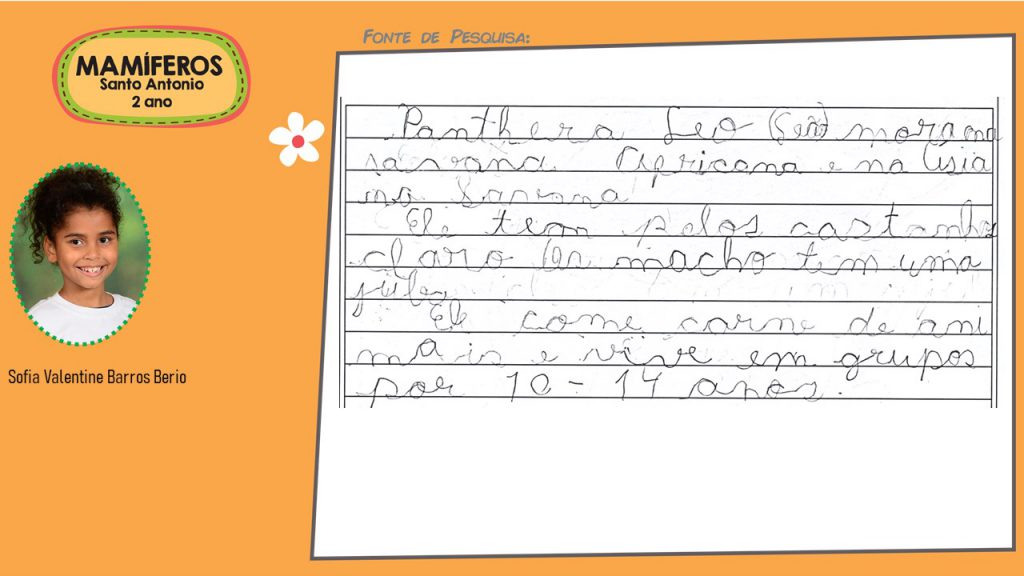 MAMÍFEROS
Santo Antonio
2 ano
FONTE DE PESQUISA:
Panthera Leo (Leão) mora na
savana Africana e na Ásia
na Savana
Ele tem pelos castanhos
claro macho tem uma
juba
Ele come carne de ani
mais e vive em grupos
por 10 - 14 anos.
Sofia Valentine Barros Berio